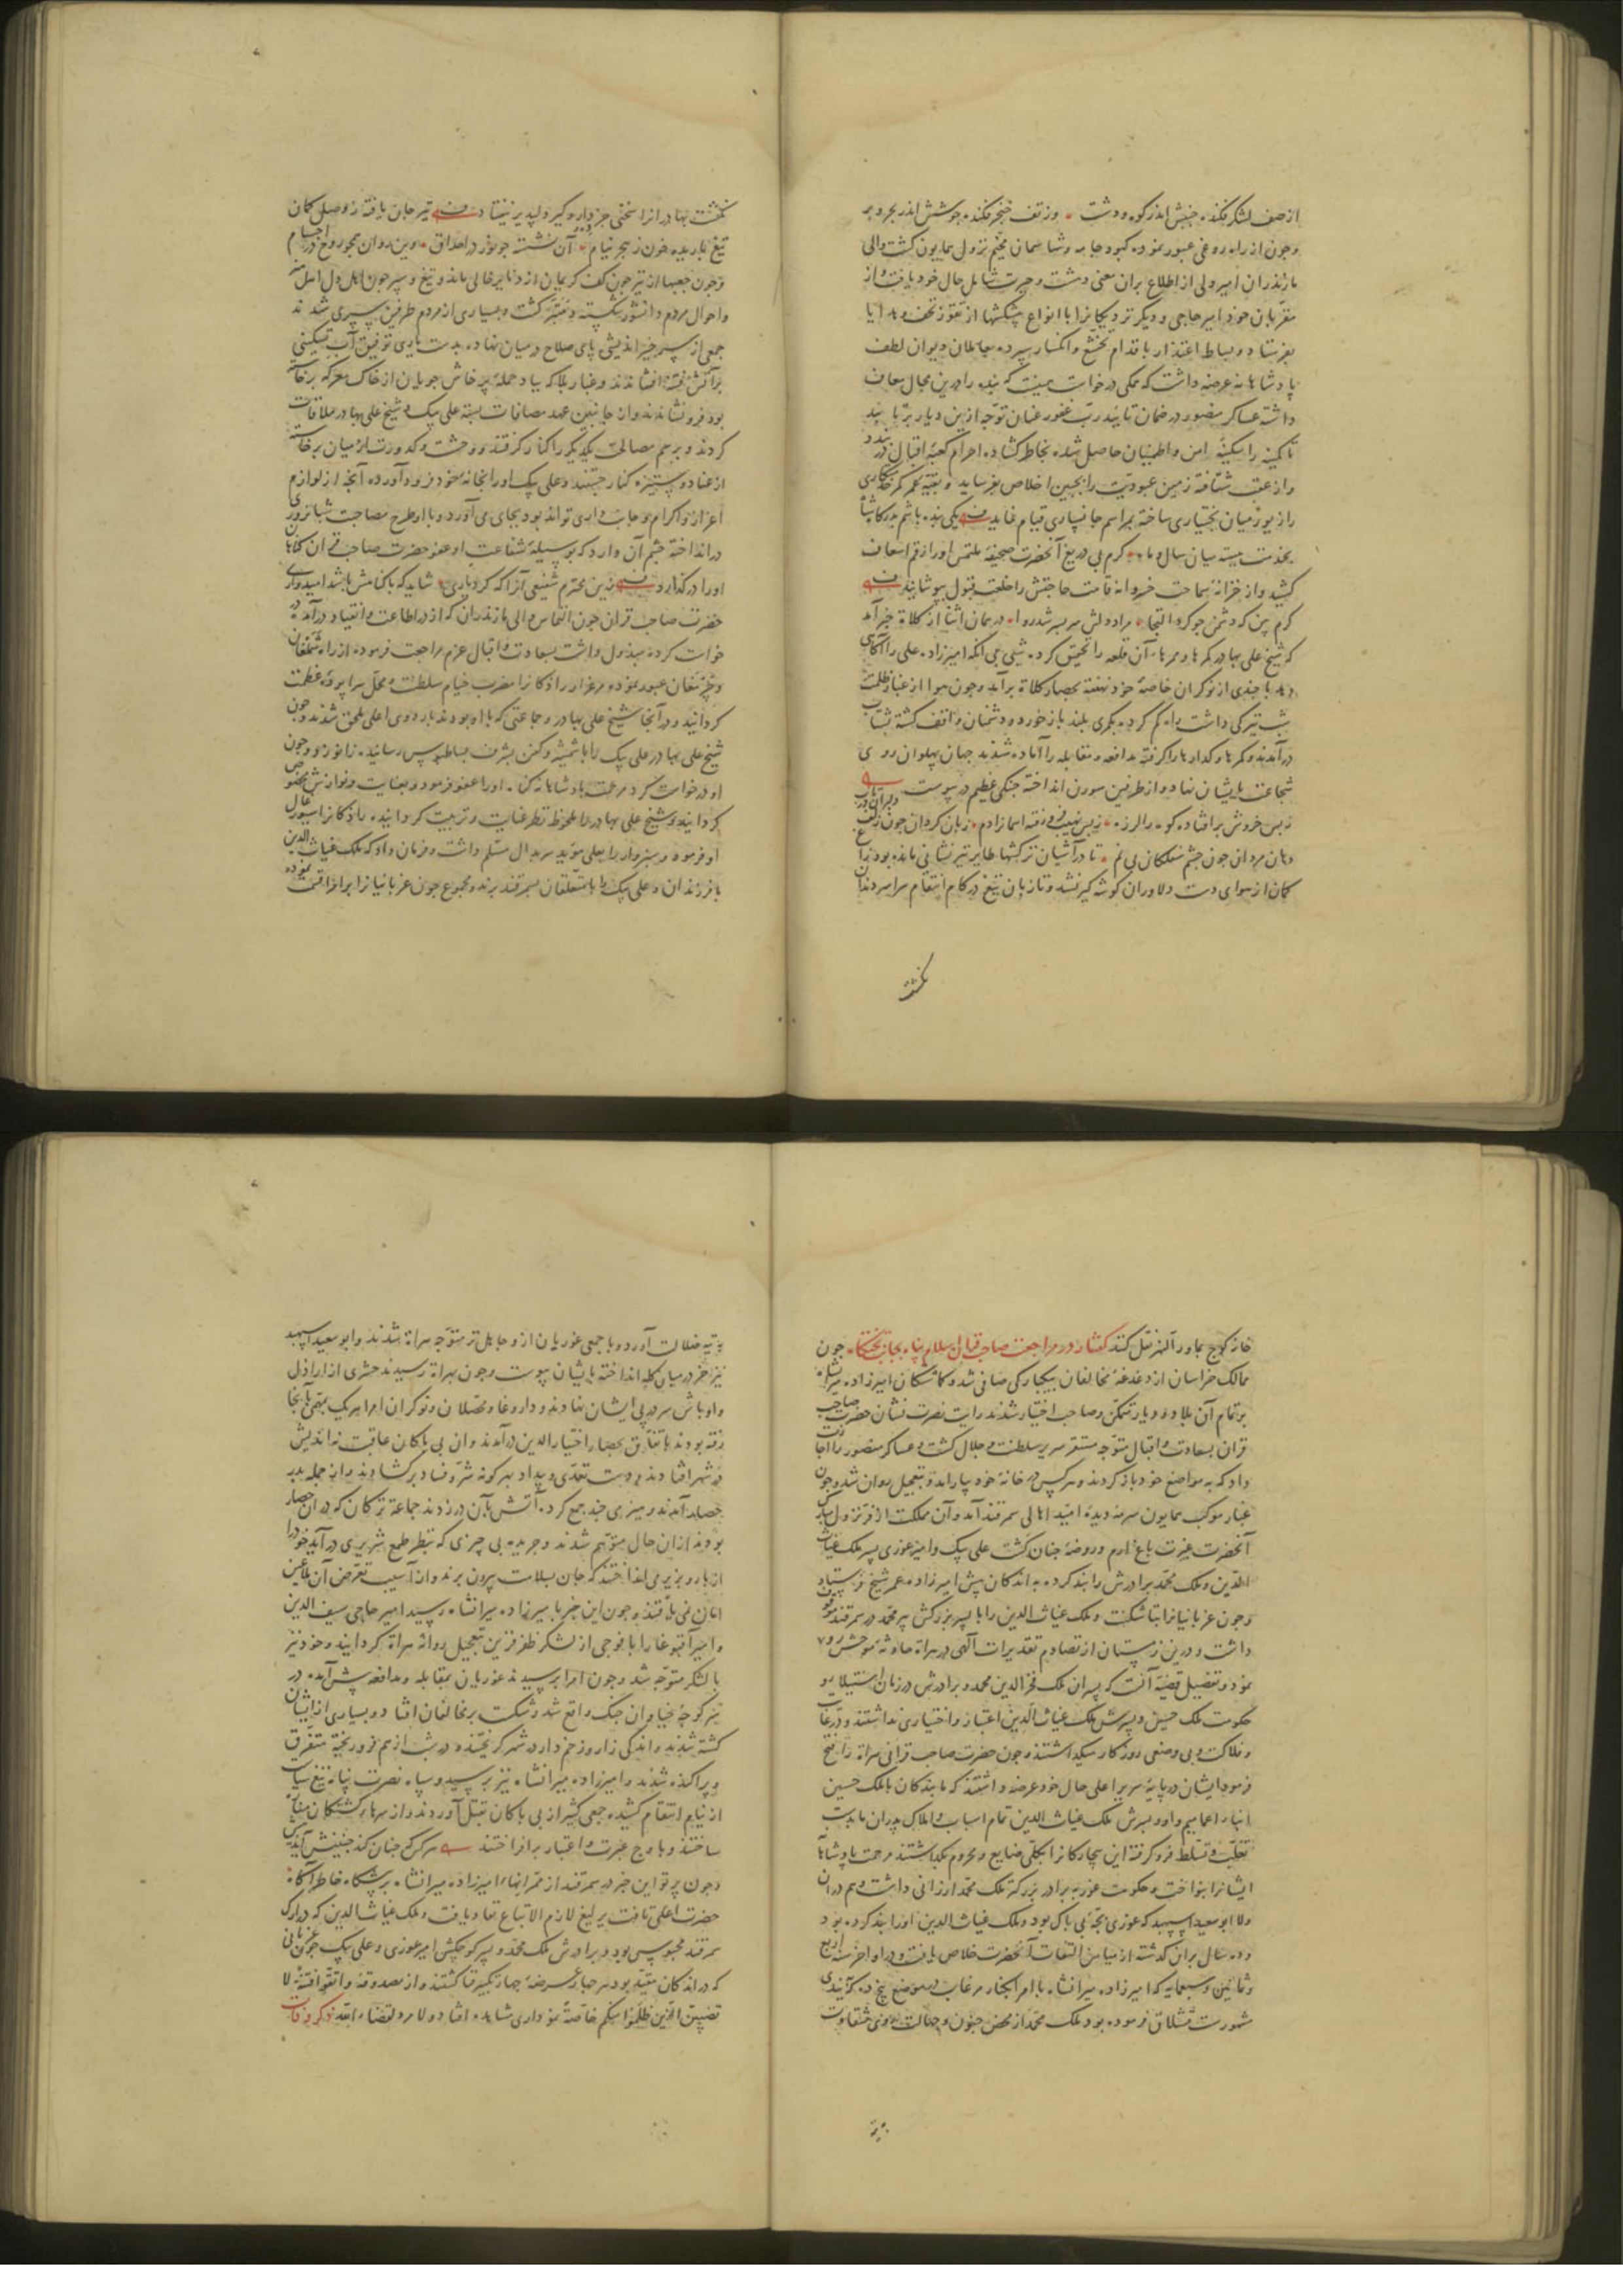 از صف لشکر فکنده جنبش اندر کوه و دشت وز تف خنجر فکنده جوشش اندر بحر و بر
و چون از راه روغی عبور نموده کبود جامه و شاسمان مخیم نزول همایون گشت والی
مازندران امیر ولی از اطلاع بران معنی دهشت و حیرت شامل حال خود یافت و از
مقربان خود امیر حاجی و دیگر نزدیکانرا با انواع پیشکشها از تقوز تحف و هدایا
بفرستاد و بساط اعتذار باقدام تخشع و انکسار سپرده بعاملان دیوان لطف
پادشاهانه عرضه داشت که ممکی درخواست هست که بنده را درین مجال معاف
داشته عساکر منصور در ضمان تایید رب غفور عنان توجه ازین دیار برتابند
تا کمینه را سکینه امن و اطمینان حاصل شده بخاطر کشاده احرام کعبه اقبال در بندد
و از عقب شتافته زمین عبودیت را بجبین اخلاص بفرساید و بقیه عمر کمر خدمتکاری
را زیور میان بختیاری ساخته بمراسم جانسپاری قیام نماید یکی بنده باشم بدرگاه شاه
بخدمت ببسته میان سال و ماه کرم بی دریغ آنحضرت صحیفه ملتمس او را رقم اسعاف
کشید و از خزانه سماحت خسروانه قامت حاجتش را خلعت قبول بپوشانید
کرم بین که دشمن جو کرد التجا مراد دلش سربسر شد روا در همان اثنا از کلاة خبر آمد
که شیخ علی بهادر کمرها و ممرهاء آن قلعه را تجسس کرده شبی بی آنکه امیرزاده علی را آگاهی
دهد با چندی از نوکران خاصه خود نهفته بحصار کلاة برآمد و چون هوا از غبار ظلمت
شب تیرگی داشت راه گم کرد بکمری بلند بازخورد و دشمنان واقف گشته بشتاب
درآمدند و کمرها و گدارها را گرفته بمدافعه و مقابله را آماده شدند جهان پهلوان روی
شجاعت بایشان نهاد و از طرفین سورن انداخته جنگی عظیم در پیوست
ز بس خروش برافتاده کوه را لرزه ز بس نهیب
دهان مردان چون چشم ممسکان بی نم تا در آشیان ترکشها طایر تیر نشانی مانده بود زاغ
کمان از هوای دست دلاوران گوشه گیر نشد و تا زبان تیغ در کام انتقام سراسر دندان
نگشت
نگشت بهادرانرا سختی جز دار و گیر دلپذیر نیفتاد تیر جان یافته ز وصل کمان
تیغ باریده خون ز هجر نیام آن نشسته چو نور در احداق وین روان همچو روح در اجسام
و چون جعبها از تیر چون کف کریمان از دنانیر خالی ماند و تیغ و سپر چون اهل دل
و احوال مردم دانشور شکسته و مبتر گشت و بسیاری از مردم طرفین سپری شدند
جمعی از سر خیراندیشی پای صلاح در میان نهاده بدست یاری توفیق آب تسکینی
بر آتش فتنه افشاندند و غبار بلا که بباد حمله پرخاش جویان از خاک معرکه برخاسته
بود فرونشاندند و از جانبین عهد مصافات بسته علی بیک و شیخ علی بهادر ملاقات
کردند و برسم مصالحت یکدیگر را کنار گرفتند و وحشت و کدورت از میان برخاست
از عناد و ستیزه کنار جستند و علی بیک او را بخانه خود فرود آورده آنچه از لوازم
اعزاز و اکرام و جانب داری تواند بود بجای می آورد و با او طرح مصاحبت شبانروزی
درانداخته چشم آن دارد که بوسیله شفاعت او عفو حضرت صاحب قران گناهان
او را درگذارد زین محترم شفیعی آنرا که کرد یاری شاید که با گناهش باشد امیدواری
حضرت صاحب قران چون التماس والی مازندران که از در اطاعت و انقیاد درآمده
خواست کرده مبذول داشت بسعادت و اقبال عزم مراجعت فرموده از راه شملقان
و جرمغان عبور نموده مرغزار رادکانرا مضرب خیام سلطنت و محل سراپرده عظمت
گردانید و در آنجا شیخ علی بهادر و جماعتی که با او بودند باردوی اعلی ملحق شدند و چون
شیخ علی بهادر علی بیک را با شمشیر و کفن بشرف بساط بوس رسانید زانو زد و چون
او درخواست کرد مرحمت پادشاهانه گناه او را عفو فرمود و بعنایت و نوازش مخصوص
گردانید و شیخ علی بهادر را ملحوظ نظر عنایت و تربیت گردانیده رادکانرا سیورغال
او فرمود و سبزوار را بعلی مؤید سربدال مسلم داشت و فرمان داد که ملک غیاث الدین
با فرزندان و علی بیک را با متعلقان بسمرقند برند و مجموع جون غربانیانرا برانداخت نموده
خانه کوچ بماورالنهر نقل کنند گفتار در مراجعت صاحب قران اسلام پناه بجانب تختگاه چون
ممالک خراسان از دغدغه مخالفان بیکبارگی صافی شد و گماشتگان امیرزاده میرانشاه
بر تمام آن بلاد و دیار متمکن و صاحب اختیار شدند رایت نصرت نشان حضرت صاحب
قران بسعادت و اقبال متوجه مستقر سریر سلطنت و جلال گشت و عساکر منصور را اجازت
داد که به مواضع خود بازگردند و هر کس در خانه خود بیاراند و بتعجیل روان شد و چون
غبار موکب همایون سرمه دیده امید اهالی سمرقند آمد و آن مملکت از فر نزول مبارک
آنحضرت غیرت باغ ارم و روضه جنان گشت علی بیک و امیر غوری پسر ملک غیاث
الدین و ملک محمد برادرش را بند کرده به اندکان پیش امیرزاده عمر شیخ فرستاد
و جون غربانیانرا بتاشکنت و ملک غیاث الدین را با پسر بزرگش پیر محمد در سمرقند موقوف
داشت و درین زمستان از تصادم تقدیرات آلهی در هراة حادثه موحش روی
نمود و تفصیل قضیه آنست که پسران ملک فخرالدین محمد و برادرش در زمان استیلا و
حکومت ملک حسین و پسرش ملک غیاث الدین اعتبار و اختیاری نداشتند و در غایت
و فلاکت و بی وضعی روزگار میگذاشتند و چون حضرت صاحب قرانی هراة را فتح
فرمود ایشان در پایه سریر اعلی حال خود عرضه داشتند که ما بندگان با ملک حسین
ابناء اعمامیم و او و پسرش ملک غیاث الدین تمام اسباب و املاک پدران ما بدست
تغلب و تسلط فروگرفته این بیچارگانرا بکلی ضایع و محروم بگذاشتند مرحمت پادشاهانه
ایشانرا بنواخت و حکومت غور به برادر بزرگتر ملک محمد ارزانی داشت و هم در آن
ولا ابو سعید اسپهبد که غوری بچه بی باک بود و ملک غیاث الدین او را بند کرده بود
و ده سال بران گذشته از میامن التفات آنحضرت خلاص یافت و در اواخر سنه اربع
و ثمانین و سبعمایه که امیرزاده میرانشاه با امرا بکنار مرغاب در موضع پنج ده
قشلاق فرموده بود ملک محمد از محض جنون و جهالت روی شقاوت
به تیه ضلالت آورد و با جمعی غوریان از متوجه هراة شدند و ابو سعید اسپهبد
نیز خر در میان گله انداخته بایشان پیوست و چون بهراة رسیدند حشری از اراذل
و اوباش سر در پی ایشان نهادند و داروغا و محصلان و نوکران امرا هر یک بمهمی بآنجا
رفته بودند باتفاق بحصار اختیارالدین درآمدند و آن بی باکان عاقبت نااندیش
در شهر افتادند و دست تعدی و بیداد بهرگونه شر و فساد برگشادند و از جمله بدر
حصار آمدند و هیزمی چند جمع کرده آتش بآن درزدند جماعة ترکان که در آن حصار
بودند ازان حال متوهم شدند و جریده بی چیزی که بنظر طمع شریری درآید خود را
از بارو بزیر می انداختند که جان بسلامت بیرون برند و از آسیب تعرض آن ملاعین
امان نمی یافتند و چون این خبر بامیرزاده میرانشاه رسید امیر حاجی سیف الدین
و امیر آقبوغا را با فوجی از لشکر ظفر قرین بتعجیل روانه هراة گردانید و خود نیز
با لشکر متوجه شد و چون امرا برسیدند غوریان بمقابله و مدافعه پیش آمده در
سر کوچه خیابان جنگ واقع شد و شکست بر مخالفان افتاد و بسیاری از ایشان
کشته شدند و اندکی زار و زخم دار در شهر گریختند و در شب از هم فروریخته متفرق
و پراگنده شدند و امیرزاده میرانشاه نیز برسید و سپاه نصرت پناه تیغ سیاست
از نیام انتقام کشیده جمعی کثیر از بی باکان بقتل آوردند و از سرهاء کشتگان منارها
ساختند و باوج عبرت و اعتبار برافراختند هر که کند چنینش آید پیش
و چون پرتو این خبر در سمرقند از ممر انهاء امیرزاده میرانشاه بر پیشگاه خاطر آگاه
حضرت اعلی تافت یرلیغ لازم الاتباع نفاذ یافت و ملک غیاث الدین که در ارک
سمرقند محبوس بود و برادرش ملک محمد و پسر کوچکش امیر غوری و علی بیک جون غربانی
که در اندکان مقید بودند هر چهار بر سر ضه چهار تکبیر فنا گشتند و از مصدوقه و اتقوا فتنة لا
تصیبن الذین ظلموا منکم خاصة نموداری مشاهده افتاد و لا مرد لقضاء الله ذکر وفات
به تیه